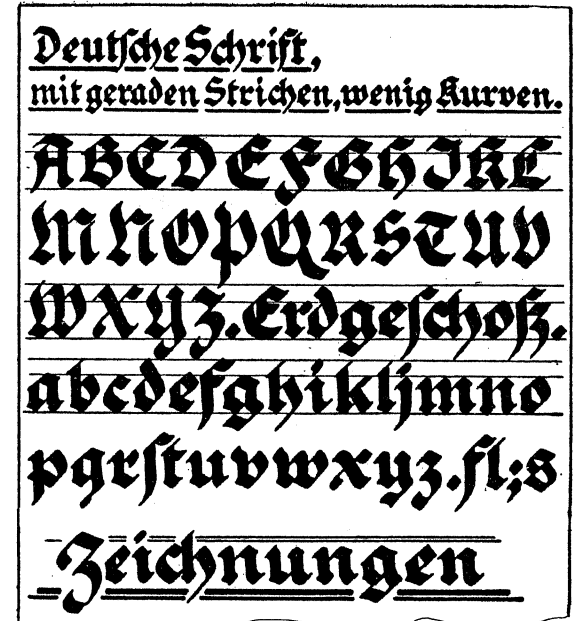 Deutſche Schrift,
mit geraden Strichen, wenig Kurven.
ABCDEFGHIKL
MNOPQRSTUV
WXYZ. Erdgeſchoß.
abcdefghikljmno
pqrſtuvwxyz.fl;s
Zeichnungen